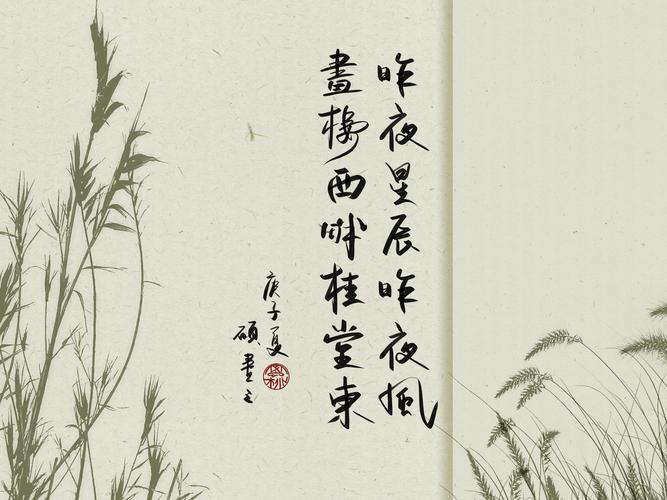 昨夜星辰昨夜風
畫樓西畔桂堂東
庚子夏
硕書之